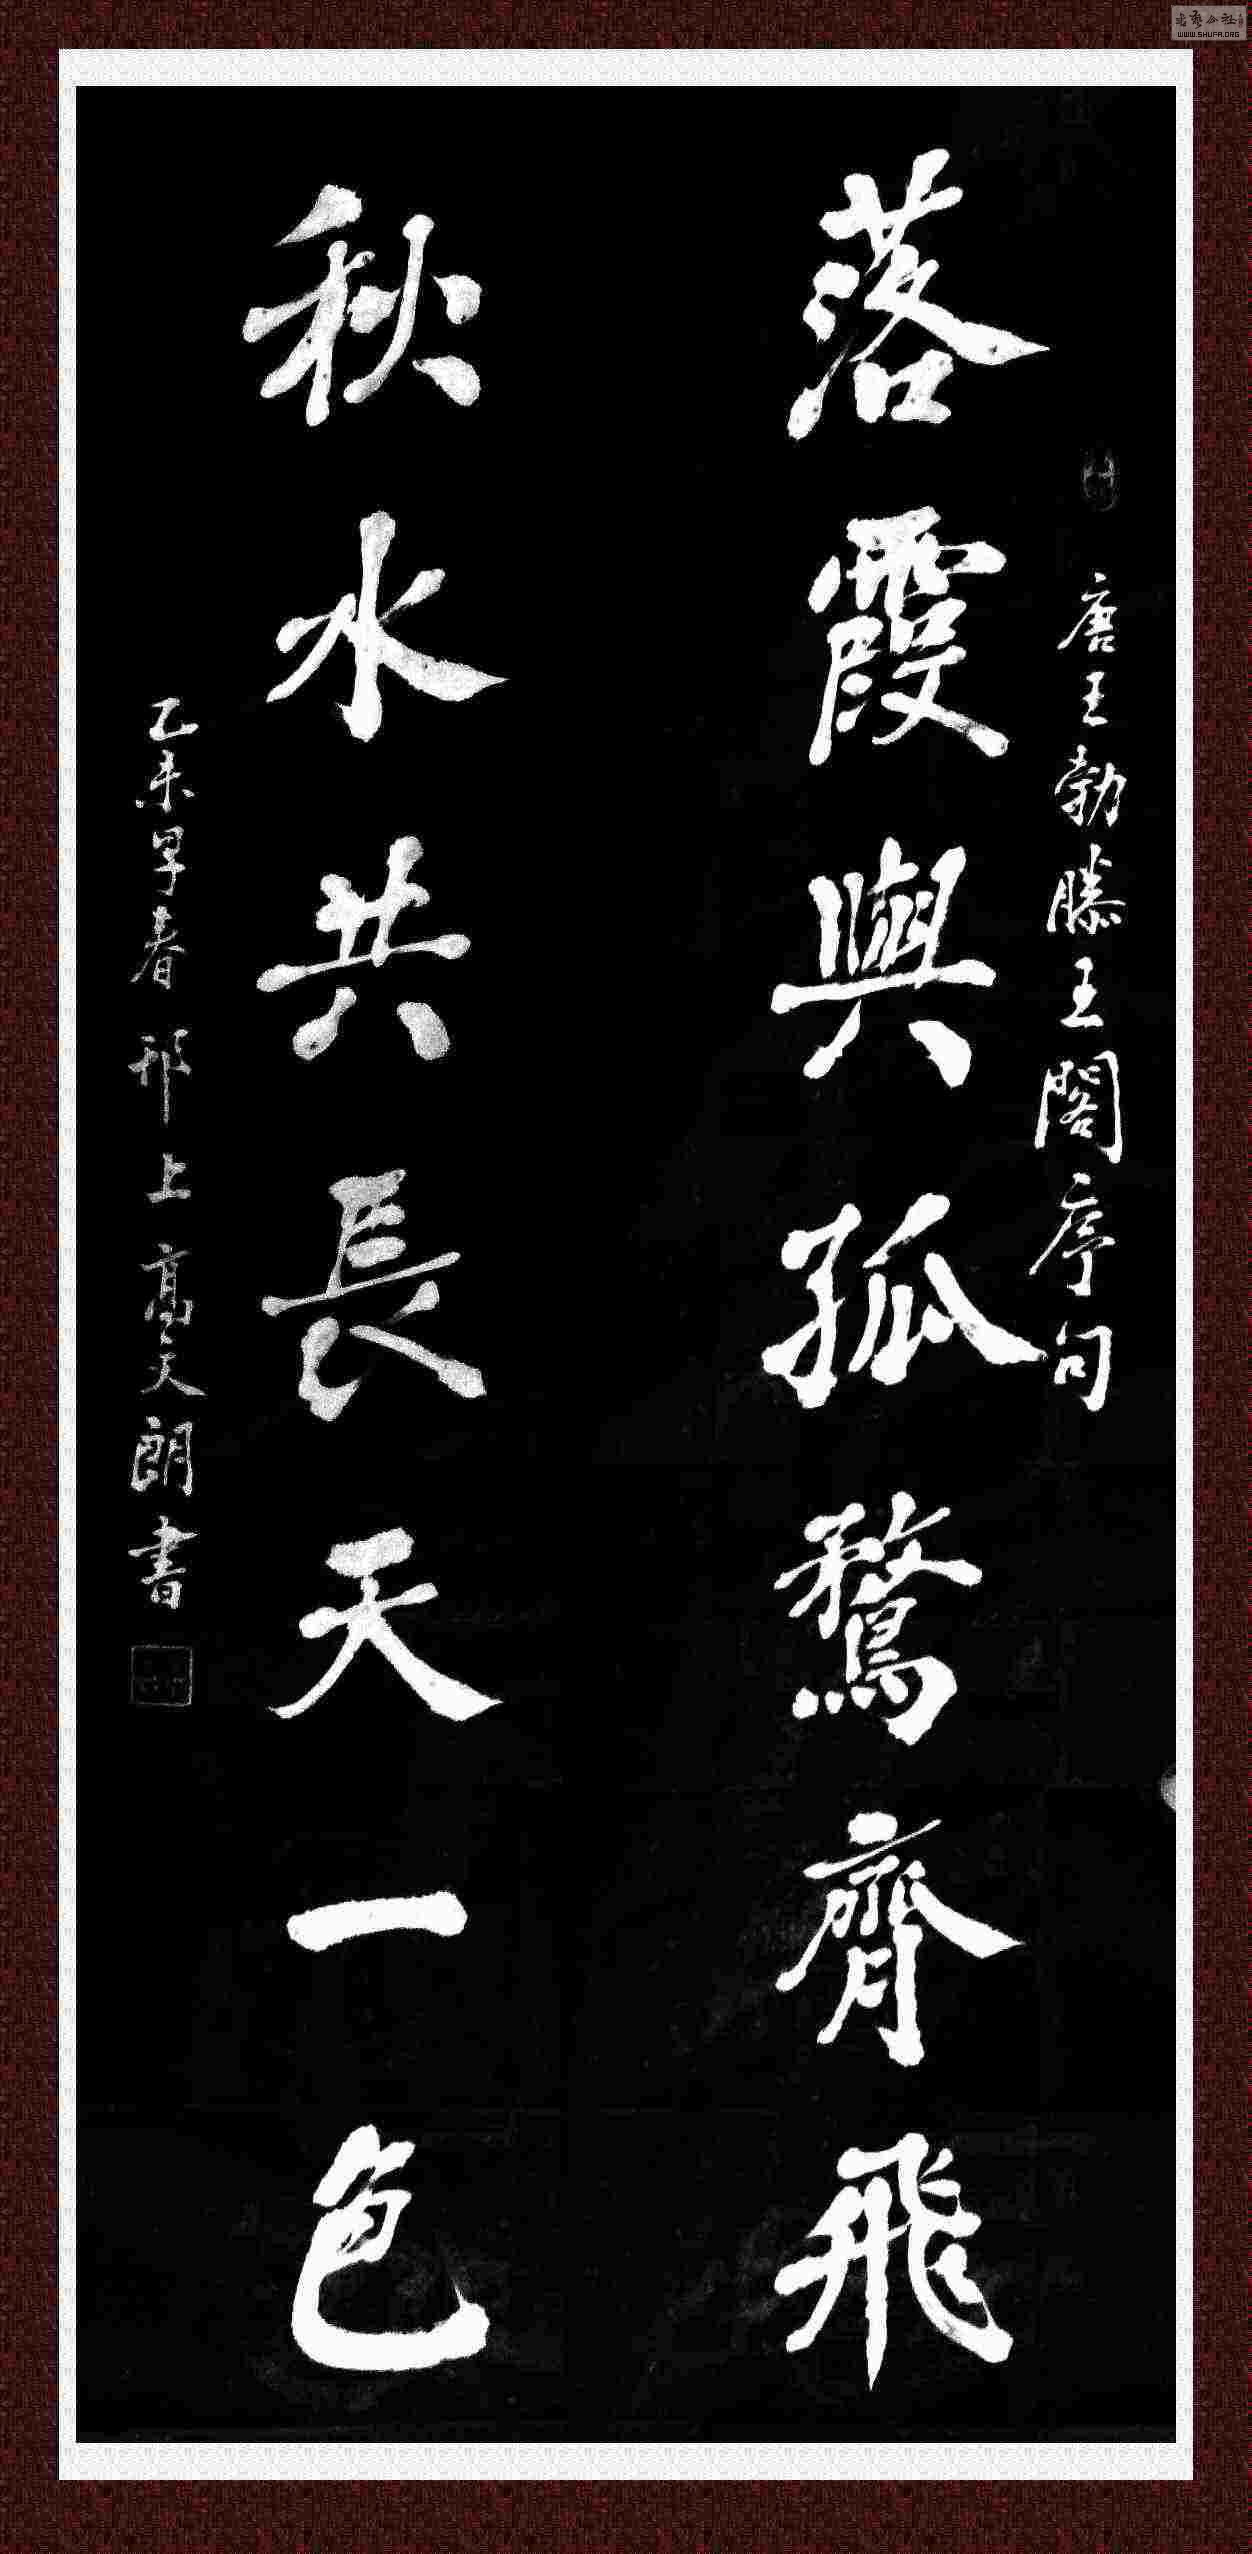 唐王勃滕王閣序句
落霞與孤鶩齊飛
秋水共長天一色
乙未早春 邗上 高天朗書
書藝公社
WWW.SHUFA.ORG